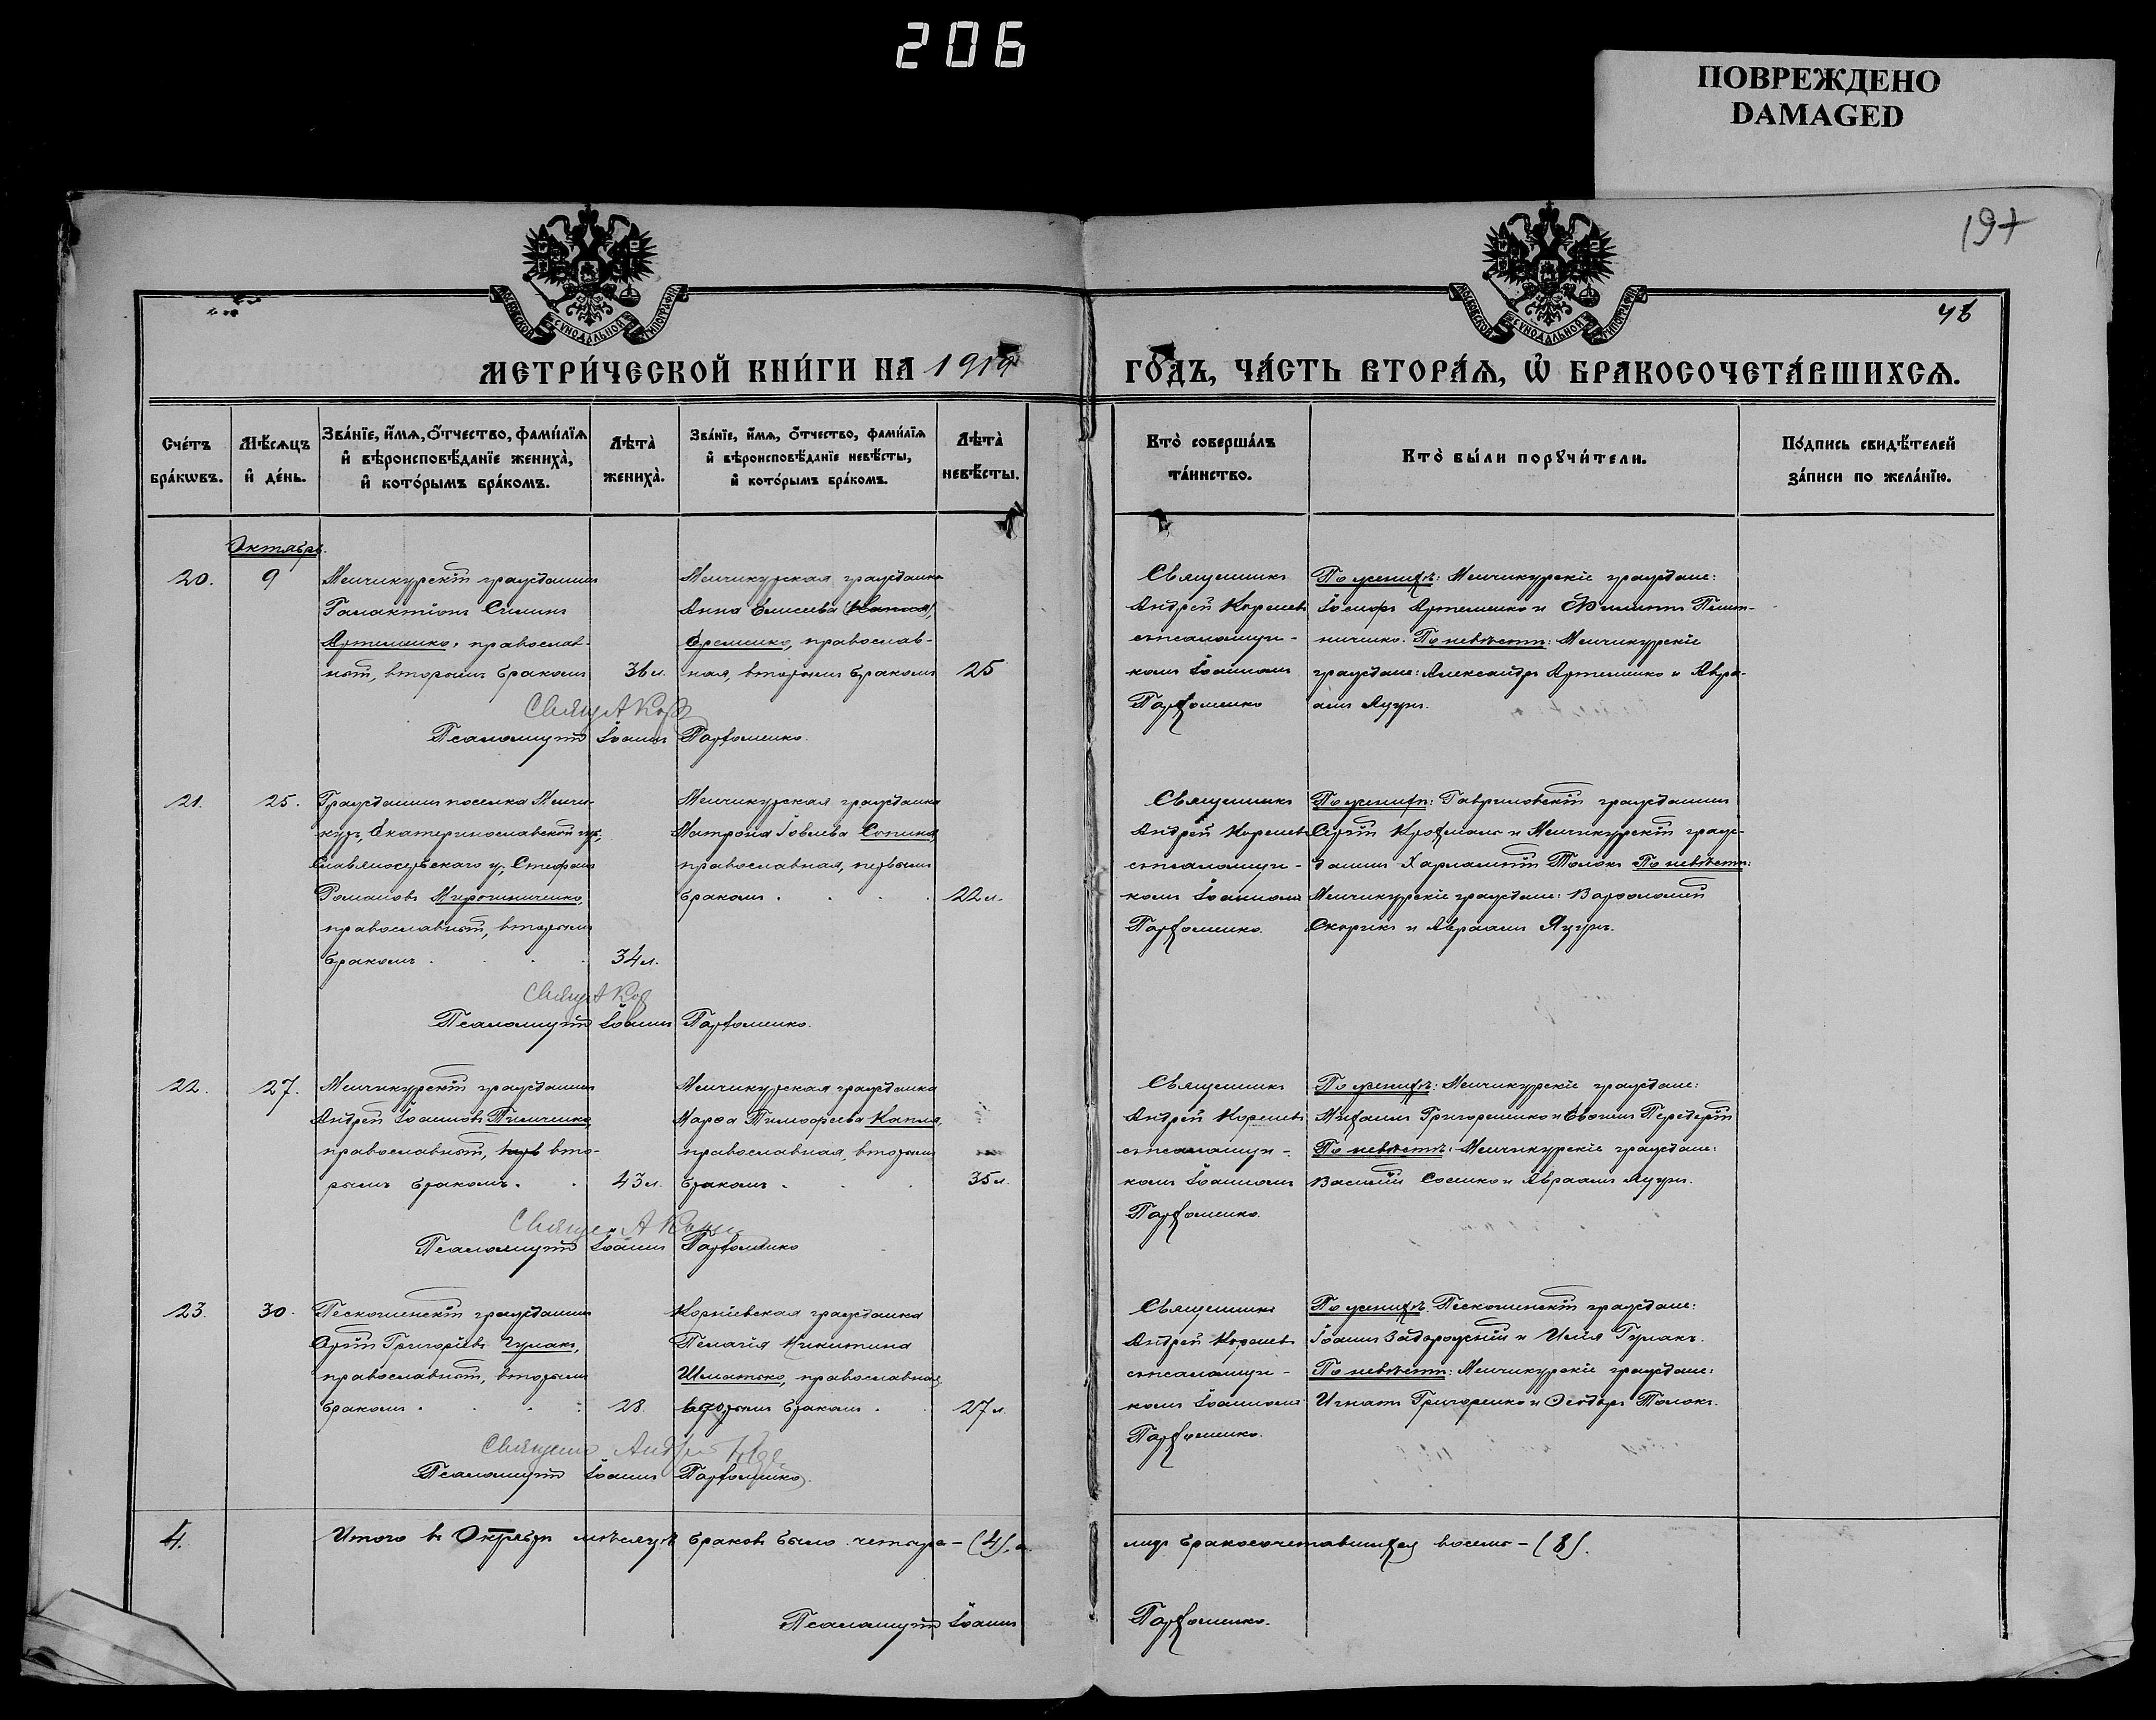 206
ПОВРЕЖДЕНО
DAMAGED
197
46
МОСКОВСКОЙ СѴНОДАЛЬНОЙ ТИПОГРАФІИ
МОСКОВСКОЙ СѴНОДАЛЬНОЙ ТИПОГРАФІИ
МЕТРИ́ЧЕСКОЙ КНИ́ГИ НА 1919
ГО́ДЪ, ЧА́СТЬ ВТОРА́Я, Ѡ҆ БРАКОСОЧЕТА́ВШИХСЯ.
Сче́тъ бра́кѡвъ.
Мѣ́сяцъ и҆ де́нь.
Зва́нїе, и҆́мя, ѻ҆́тчество, фами́лїя и҆ вѣроисповѣ́данїе жениха̀, и҆ кото́рымъ бра́комъ.
Лѣта̀ жениха̀.
Зва́нїе, и҆́мя, ѻ҆́тчество, фами́лїя и҆ вѣроисповѣ́данїе невѣ́сты, и҆ кото́рымъ бра́комъ.
Лѣта̀ невѣ́сты.
Кто̀ соверша́лъ та́инство.
Кто̀ бы́ли порꙋчи́тели.
По́дпись свидѣ́телей за́писи по жела́нїю.
Октябрь.
20.
9
Менчикурскій гражданинъ
Галактіонъ Симинъ
Артеменко, православ-
ный, вторымъ бракомъ
36 л.
Менчикурская гражданка
Анна Елисеева
Еременко, православ-
ная, вторымъ бракомъ
25
Священникъ
Андрей Корневъ
съ псаломщи-
комъ Іоанномъ
Парфоменко
По женихѣ: Менчикурскіе граждане:
Іосифъ Артеменко и Филиппъ
ниченко. По невѣстѣ: Менчикурскіе
граждане: Александръ Артеменко и Авра-
амъ Яцунъ.
Свящ А Кор
Псаломщикъ Іоаннъ Парфоменко.
21.
25.
Гражданинъ поселка Менчи-
куръ, Екатеринославской губ.,
Славяносербскаго у., Стефанъ
Романовъ Мирошниченко,
православный, вторымъ
бракомъ
34 л.
Менчикурская гражданка
Матрона Іовлева Сопина,
православная, первымъ
бракомъ
22 л.
Священникъ
Андрей Корневъ
съ псаломщи-
комъ Іоанномъ
Парфоменко.
По женихѣ: Гавриловскій гражданинъ
Сергій и Менчикурскій граж-
данинъ Харлампій Толокъ По невѣстѣ:
Менчикурскіе граждане: Варфоломей
Скорикъ и Авраамъ Яцунъ.
Свящ А Кор
Псаломщикъ Іоаннъ Парфоменко.
22.
27.
Менчикурскій гражданинъ
Андрей Іоанновъ Тимченко
православный, вто-
рымъ бракомъ
43 л.
Менчикурская гражданка
Марѳа Тимофеева Капля,
православная, вторымъ
бракомъ
35 л.
Священникъ
Андрей Корневъ
съ псаломщи-
комъ Іоанномъ
Парфоменко.
По женихѣ: Менчикурскіе граждане:
Михаилъ Григоренко и Евфимъ Передерій
По невѣстѣ: Менчикурскіе граждане:
Василій Сосенко и Авраамъ Яцунъ.
Священ А Корн
Псаломщикъ Іоаннъ Парфоменко
23.
30.
Пескошенскій гражданинъ
Сергій Григоріевъ Чумакъ,
православный, вторымъ
бракомъ
28.
Корніевская гражданка
Пелагія Никитина
Шматько, православная,
вторымъ бракомъ
27 л.
Священникъ
Андрей Корневъ
съ псаломщи-
комъ Іоанномъ
Парфоменко.
По женихѣ. Пескошенскіе граждане:
Іоаннъ Задорожній и Илія Гумакъ.
По невѣстѣ: Менчикурскіе граждане:
Игнатъ Григоренко и Ѳеодоръ Толокъ.
Священ Андрей Кор
Псаломщикъ Іоаннъ Парфоменко.
4.
Итого въ Октябрѣ мѣсяцѣ браковъ было четыре - (4), а лицъ бракосочетавшихся восемь - (8).
Псаломщикъ Іоаннъ Парфоменко.